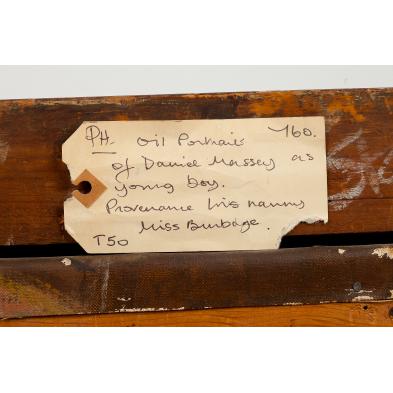 PH. Oil Portrait 760.
of Daniel Massey as
young boy.
Provenance his nanny
Miss Burbage.
T50